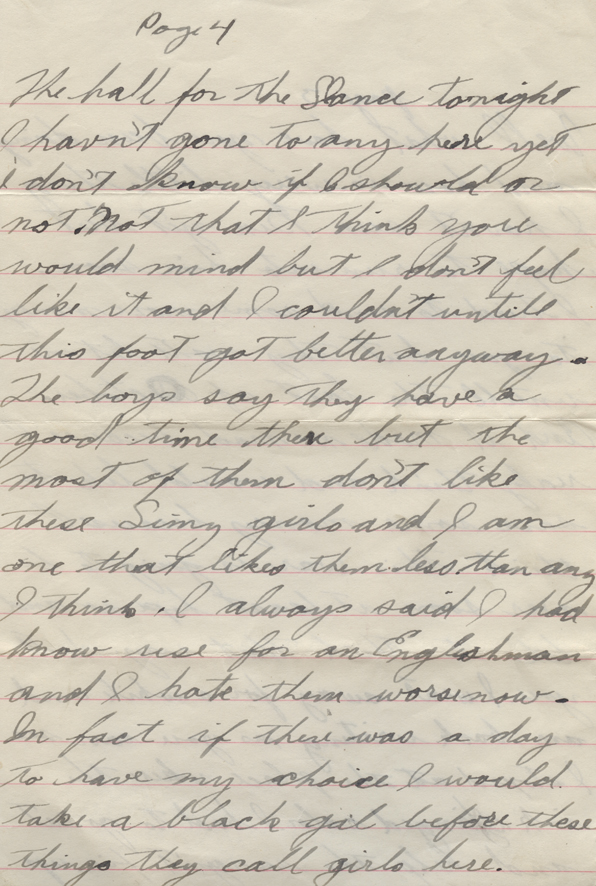 Page 4
The hall for the Dance tonight
I havn't gone to any here yet
i don't know if I should or
not. Not that I think youe
would mind but I don't feel
like it and I couldn't untill
this foot got better anyway.
The boys say they have a
good time there but the
most of them don't like
these Limy girls and I am
one that likes them less than any
I think. I always said I had
know use for an Englishman
and I hate them worse now.
In fact if there was a day
to have my choice I would
take a black gal before these
things they call girls here.